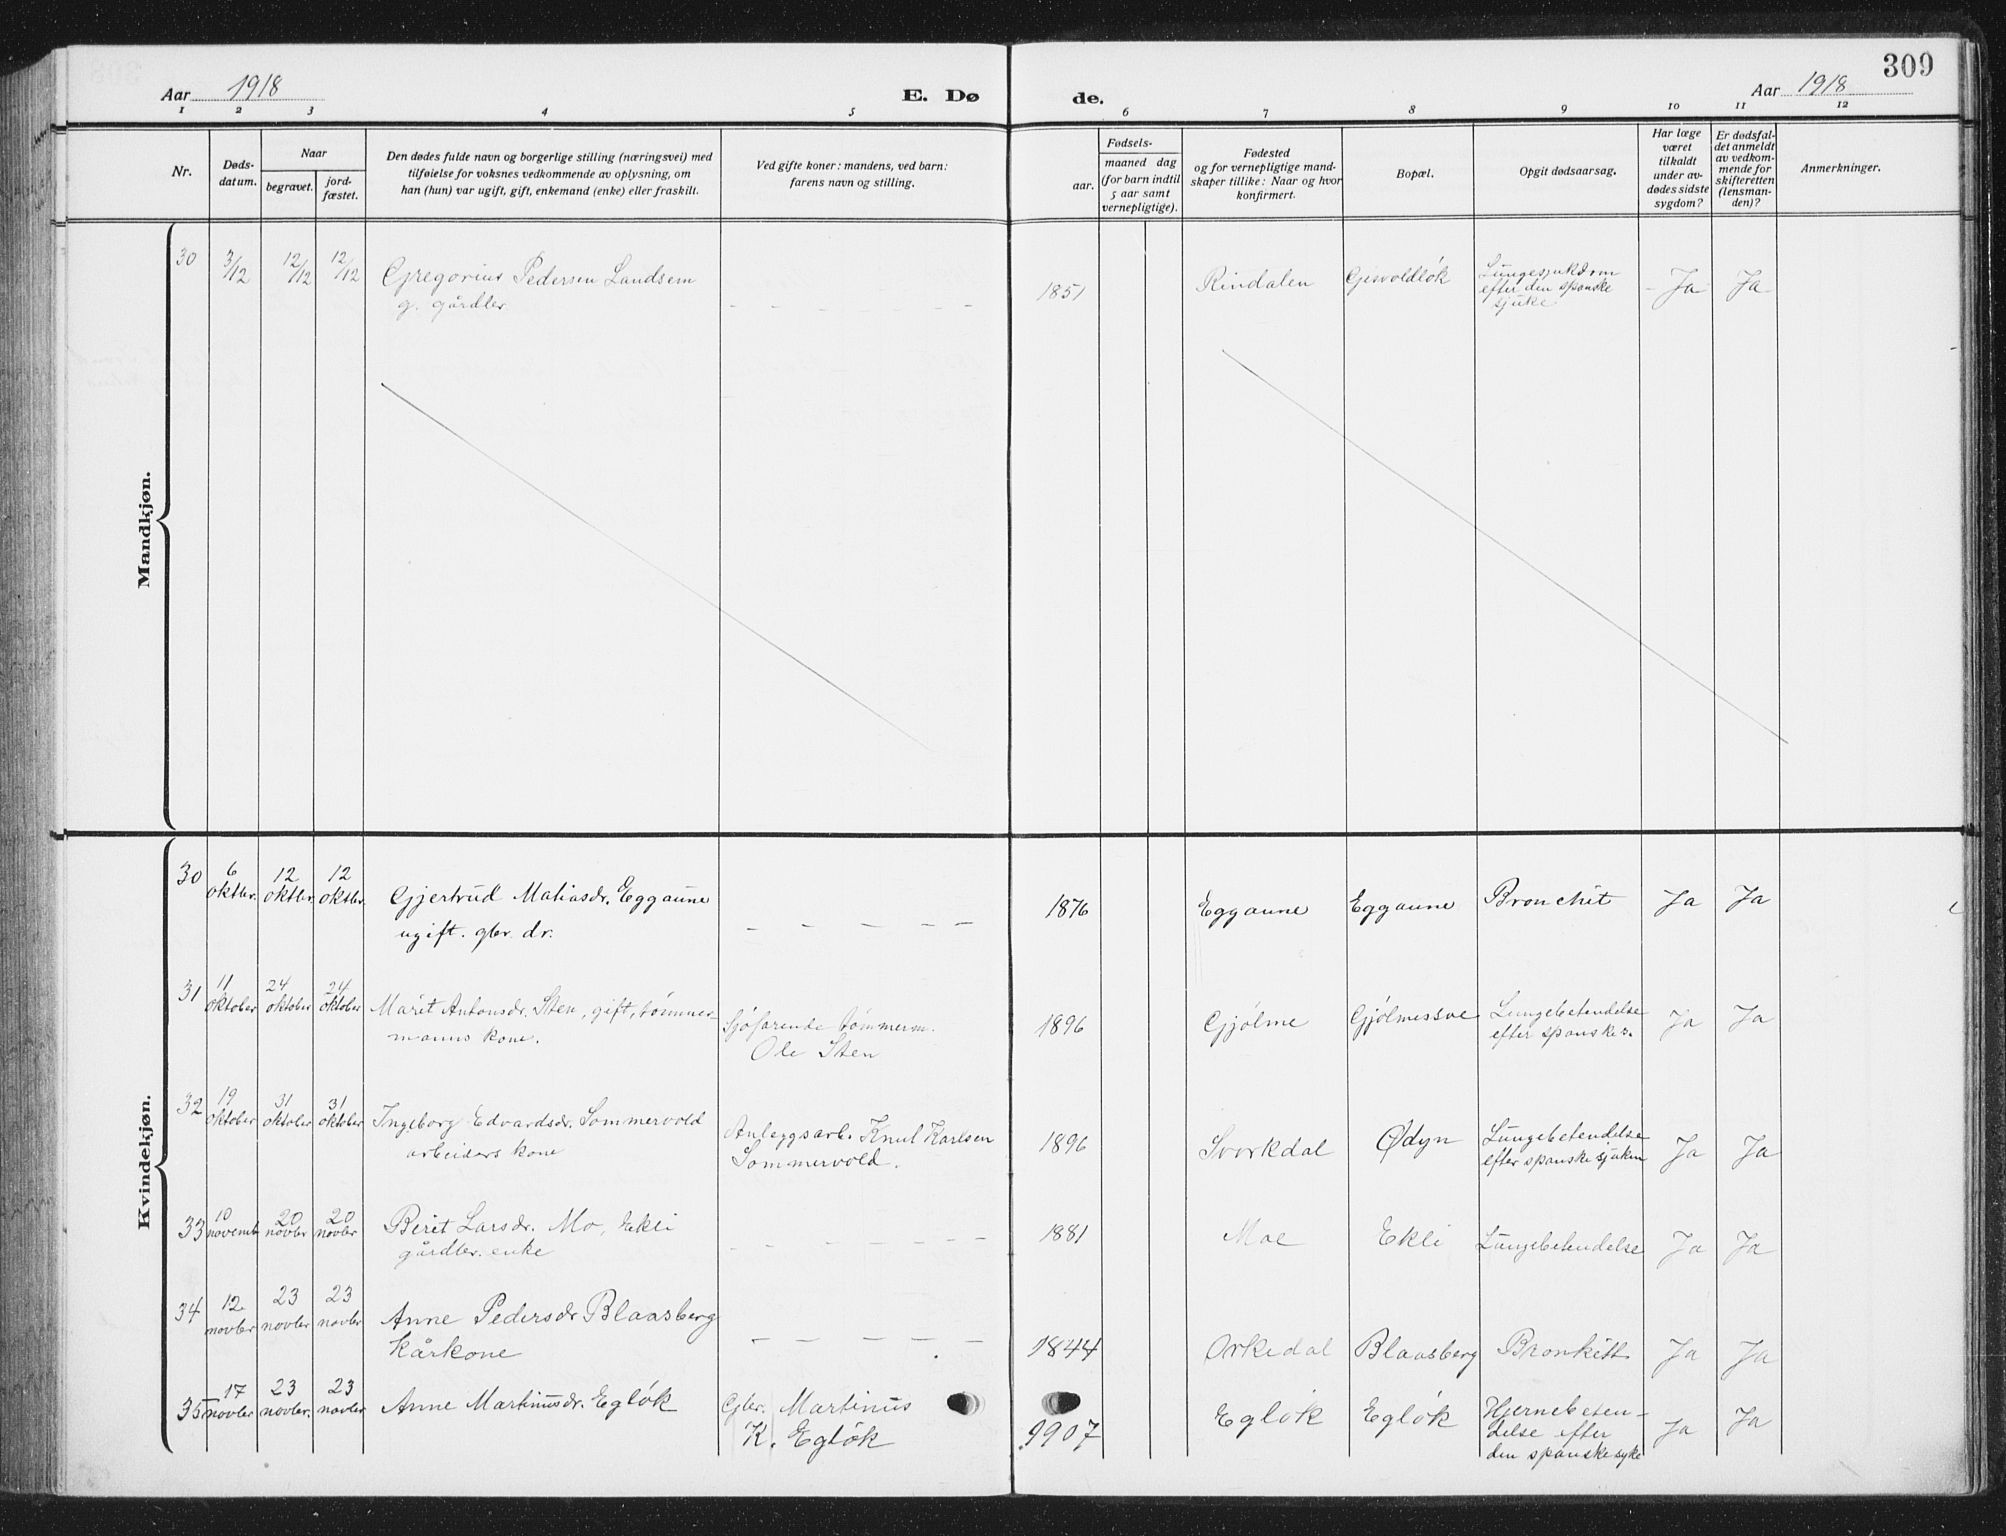 309
Aar 1918
E. Dø
de.
Aar 1918
1 2 3 4 5 6 7 8 9 10 11 12
Nr.
Døds-
datum.
Naar
begravet.
jord-
fæstet.
Den dødes fulde navn og borgerlige stilling (næringsvei) med
tilføielse for voksnes vedkommende av oplysning, om
han (hun) var ugift, gift, enkemand (enke) eller fraskilt.
Ved gifte koner: mandens, ved barn:
farens navn og stilling.
Fødsels-
aar.
maaned dag
(for barn indtil
5 aar samt
vernepligtige).
Fødested
og for vernepligtige mand-
skaper tillike: Naar og hvor
konfirmert.
Bopæl.
Opgit dødsaarsag.
Har læge
været
tilkaldt
under av-
dødes sidste
sygdom?
Er dødsfal-
det anmeldt
av vedkom-
mende for
skifteretten
(lensman-
den)?
Anmerkninger.
Mandkjøn.
30 3/12 12/12 12/12 Gregorius Pedersen Landsem
g. gårdbr.
- - - - - -
1851 Rindalen Gjisvoldløk
Lungesjukdom
efter den spanske
sjuke
- Ja Ja
Kvindekjøn.
30 6 oktbr. 12 oktbr. 12 oktbr. Gjertrud Matiasdr. Eggaune
ugift. gbr. dr.
- - - - -
1876 Eggaune Eggaune Bronchit Ja Ja
31 11 oktober 24 oktober 24 oktober Marit Antonsdr. Sten, gift, tømmer-
manns kone.
Sjøfarende tømmerm.
Ole Sten
1896 Gjølme Gjølmessve
Lungebetendelse
efter spanske s.
Ja Ja
32 19 oktober 31 oktober 31 oktober Ingeborg Edvardsdr. Sommervold
arbeiders kone
Anleggsarb. Knut Karlsen
Sommervold.
1896 Svorkdal Ødyn
Lungebetendelse
efter spanske sjuken
Ja Ja
33 10 novemb 20 novbr 20 novbr Beret Larsdr. Mo, Ekli
gårdbr. enke
- - - - - -
1881 Moe Ekli Lungebetendelse Ja Ja
34 12. novbr 23 novbr 23 novbr Anne Pedersdr Blaasberg
kårkone
- - - - -
1844 Orkedal Blaasberg Bronkitt Ja Ja
35 17 novbr 23 novbr. 23 novbr Anne Martinusdr. Egløk
Gbr. Martinus
K. Egløk
1907 Egløk Egløk
Hjernebeten-
delse efter
den spanske syke
Ja Ja